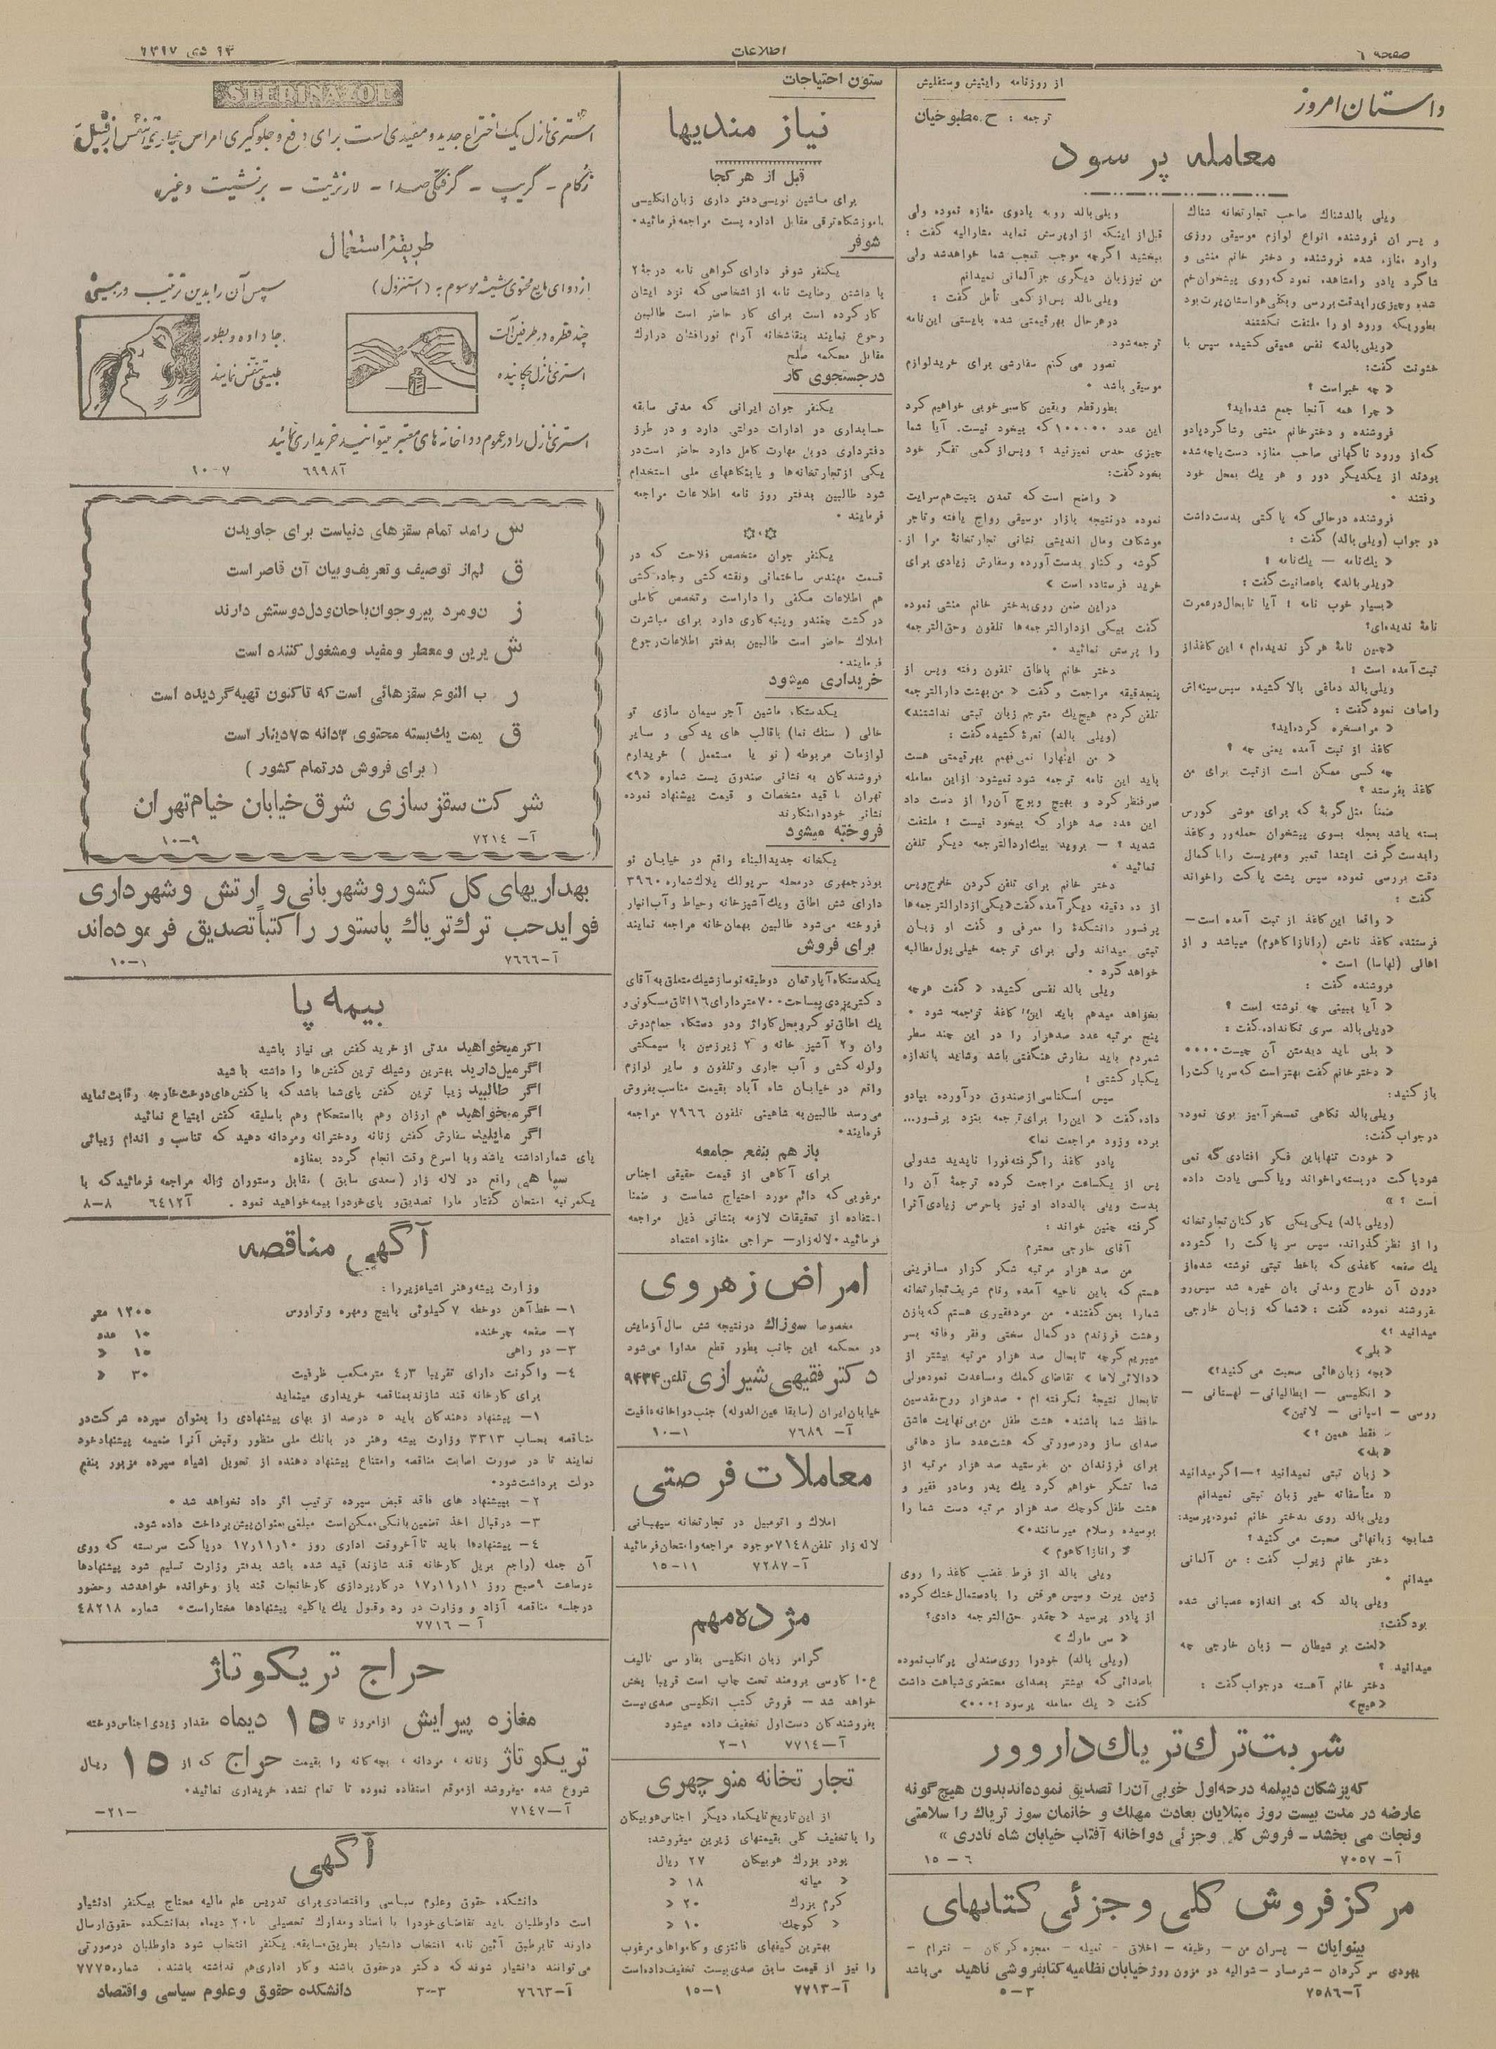 صفحه ٦
اطلاعات
۱۳ دی ۱۳۱۷
داستان امروز
از روزنامه رایشس وستفلیش
ترجمه : ح. مطبوخیان
معامله پر سود
ویلی بالدشناك صاحب تجارتخانه شناك
و پسران فروشنده انواع لوازم موسیقی روزی
وارد مغازه شده فروشنده و دختر خانم منشی و
شاگرد پادو را مشاهده نمود که روی پیشخوان خم
شده و چیزی را بدقت بررسی و بکلی هواسشان پرت بود
بطوریکه ورود او را ملتفت نگشتند
«ویلی بالد» نفس عمیقی کشیده سپس با
خشونت گفت:
« چه خبر است ؟
« چرا همه آنجا جمع شده‌اید؟
فروشنده و دختر خانم منشی و شاگرد پادو
که از ورود ناگهانی صاحب مغازه دست پاچه شده
بودند از یکدیگر دور و هر یك بمحل خود
رفتند .
فروشنده در حالی که پاکتی بدست داشت
در جواب (ویلی بالد) گفت :
« یك نامه — یك نامه !
«ویلی بالد» با عصبانیت گفت :
«بسیار خوب نامه ! آیا تا بحال در عمرت
نامه ندیده‌ای؟
«چنین نامه هرگز ندیده‌ام ، این کاغذ از
تبت آمده است !
ویلی بالد دماغی بالا کشیده سپس سینه‌اش
را صاف نمود گفت :
« مرا مسخره کرده‌اید؟
کاغذ از تبت آمده یعنی چه ؟
چه کسی ممکن است از تبت برای من
کاغذ بفرستد ؟
ضمناً مثل گربهٔ که برای موشی کورس
بسته باشد بعجله بسوی پیشخوان حمله‌ور و کاغذ
را بدست گرفت ابتدا تمبر و مهر پست را با کمال
دقت بررسی نموده سپس پشت پاکت را خواند
گفت :
« واقعا این کاغذ از تبت آمده است —
فرستنده کاغذ نامش (رانازاکاهوم) میباشد و از
اهالی (لهاسا) است .
فروشنده گفت :
« آیا ببینی چه نوشته است ؟
«ویلی بالد سری تکان داد، گفت :
« بلی باید دیدمتن آن چیست....
« دختر خانم گفت بهتر است که سر پاکت را
باز کنید:
ویلی بالد نگاهی تمسخر آمیز بوی نموده
در جواب گفت:
« خودت تنها باین فکر افتادی که نمی
شود پاکت در بسته را خواند و یا کسی یادت داده
است ؟ »
(ویلی بالد) یکی یکی کارکنان تجارتخانه
را از نظر گذراند، سپس سر پاکت را گشوده
یك صفحه کاغذی که با خط تبتی نوشته شده از
درون آن خارج و مدتی بان خیره شد سپس رو
بفروشنده نموده گفت : «شما که زبان خارجی
میدانید ؟!
«بلی»
«بچه زبان‌هائی صحبت می کنید؟»
« انگلیسی — ایطالیائی — لهستانی —
روسی — اسپانی — لاتین»
« فقط همین ؟!»
«بله»
« زبان تبتی نمیدانید ؟—اگر میدانید
« متأسفانه خیر زبان تبتی نمیدانم
ویلی بالد روی بدختر خانم نمود، پرسید:
شما بچه زبانهائی صحبت می کنید؟
دختر خانم زیر لب گفت : من آلمانی
میدانم .
ویلی بالد که بی اندازه عصبانی شده
بود گفت:
«لعنت بر شیطان — زبان خارجی چه
میدانید ؟
دختر خانم آهسته در جواب گفت :
«هیچ»
ویلی بالد رو به پادوی مغازه نموده ولی
قبل از اینکه از او پرسش نماید مشارالیه گفت :
ببخشید اگر چه موجب تعجب شما خواهد شد ولی
من نیز زبان دیگری جز آلمانی نمیدانم
ویلی بالد پس از کمی تأمل گفت :
در هر حال بهر قیمتی شده بایستی این نامه
ترجمه شود.
تصور می کنم سفارشی برای خرید لوازم
موسیقی باشد .
بطور قطع و یقین کاسبی خوبی خواهیم کرد
این عدد ۱۰۰۰۰۰ که بیخود نیست. آیا شما
چیزی حدس نمیزنید ؟ و پس از کمی تفکر خود
بخود گفت:
« واضح است که تمدن بتبت هم سرایت
نموده در نتیجه بازار موسیقی رواج یافته و تاجر
موشکاف و مال اندیشی نشانی تجارتخانهٔ مرا از
گوشه و کنار بدست آورده و سفارش زیادی برای
خرید فرستاده است »
در این ضمن روی بدختر خانم منشی نموده
گفت بیکی از دارالترجمه‌ها تلفون و حق الترجمه
را پرسش نمائید .
دختر خانم باطاق تلفون رفته و پس از
پنجدقیقه مراجعت و گفت « من بهشت دارالترجمه
تلفن کردم هیچ یك مترجم زبان تبتی نداشتند»
(ویلی بالد) نعرهٔ کشیده گفت :
« من اینهارا نمی فهم بهر قیمتی هست
باید این نامه ترجمه شود نمیشود از این معامله
صرفنظر کرد و بهیچ وپوچ آن را از دست داد
این عدد صد هزار که بیخود نیست ! ملتفت
شدید ؟ — بروید بیك دارالترجمه دیگر تلفن
نمائید .
دختر خانم برای تلفن کردن خارج و پس
از ده دقیقه دیگر آمده گفت «یکی از دارالترجمه‌ها
پرفسور دانشکدهٔ را معرفی و گفت او زبان
تبتی میداند ولی برای ترجمه خیلی پول مطالبه
خواهد کرد .
ویلی بالد نفسی کشیده « گفت هر چه
بخواهد میدهم باید این کاغذ ترجمه شود .
پنج مرتبه عدد صد هزار را در این چند سطر
شمردم باید سفارش هنگفتی باشد و شاید باندازه
یکبار کشتی !
سپس اسکناسی از صندوق در آورده بپادو
داده گفت « این را برای ترجمه بنزد پرفسور...
برده و زود مراجعت نما»
پادو کاغذ را گرفته فورا ناپدید شد ولی
پس از یکساعت مراجعت کرده ترجمهٔ آن را
بدست ویلی بالد داد او نیز با حرص زیادی آنرا
گرفته چنین خواند :
آقای خارجی محترم
من صد هزار مرتبه شکر گزار مسافرینی
هستم که باین ناحیه آمده و نام شریف تجارتخانه
شما را بمن گفتند. من مرد فقیری هستم که با زن
و هشت فرزندم در کمال سختی و فقر وفاقه بسر
میبریم گرچه تا بحال صد هزار مرتبه بیشتر از
«دالائی لاما » تقاضای کمك و مساعدت نموده ولی
تا بحال نتیجهٔ نگرفته ام . صد هزار روح مقدسین
حافظ شما باشند. هشت طفل من بی نهایت عاشق
صدای ساز و در صورتی که هشت عدد ساز دهانی
برای فرزندان من بفرستید صد هزار مرتبه از
شما تشکر خواهم کرد یك پدر و مادر فقیر و
هشت طفل کوچك صد هزار مرتبه دست شما را
بوسیده و سلام میرسانند.»
« رانازاکاهوم »
ویلی بالد از فرط غضب کاغذ را روی
زمین پرت و سپس عرقش را با دستمال خشك کرده
از پادو پرسید « چقدر حق الترجمه دادی؟
« سی مارك »
(ویلی بالد) خود را روی صندلی پرتاب نموده
با صدائی که بیشتر بصدای محتضری شباهت داشت
گفت « یك معامله پر سود !...»
شربت ترك تریاك داروور
که پزشکان دیپلمه درجه اول خوبی آن را تصدیق نموده‌اند بدون هیچ گونه
عارضه در مدت بیست روز مبتلایان بعادت مهلك و خانمان سوز تریاك را سلامتی
و نجات می بخشد — فروش کلی و جزئی دواخانه آفتاب خیابان شاه نادری »
آ— ۷۰۵۷
٦ — ۱۵
مرکز فروش کلی و جزئی کتابهای
بینوایان — پسران من — وظیفه — اخلاق — — معجزه گر کان — —
یهودی سرگردان — شرمسار — شوالیه دو مزون روژ خیابان نظامیه کتابفروشی ناهید می باشد
آ—۷۵۸٦
۳—۵
ستون احتیاجات
نیازمندیها
قبل از هر کجا
برای ماشین نویسی دفتر داری زبان انگلیسی
باموزشگاه ترقی مقابل اداره پست مراجعه فرمائید.
شوفر
یکنفر شوفر دارای گواهی نامه درجهٔ ۲
با داشتن رضایت نامه از اشخاصی که نزد ایشان
کار کرده است برای کار حاضر است طالبین
رجوع نمایند بنقاشخانه آرام نورافشان در ارك
مقابل محکمه صلح
در جستجوی کار
یکنفر جوان ایرانی که مدتی سابقه
حسابداری در ادارات دولتی دارد و در طرز
دفتر داری دوبل مهارت کامل دارد حاضر است در
یکی از تجارتخانه‌ها و یا بنگاههای ملی استخدام
شود طالبین بدفتر روز نامه اطلاعات مراجعه
فرمایند .
یکنفر جوان متخصص فلاحت که در
قسمت مهندس ساختمانی و نقشه کشی و جاده کشی
هم اطلاعات مکفی را داراست و تخصص کاملی
در کشت چغندر و پنبه کاری دارد برای مباشرت
املاك حاضر است طالبین بدفتر اطلاعات رجوع
فرمایند.
خریداری میشود
یکدستگاه ماشین آجر سیمان سازی تو
خالی ( سنك نما) با قالب های یدکی و سایر
لوازمات مربوطه ( نو یا مستعمل ) خریدارم
فروشندگان به نشانی صندوق پست شماره «۹»
تهران با قید مشخصات و قیمت پیشنهاد نموده
نشانی خود را بنگارند
فروخته میشود
یکخانه جدیدالبناء واقع در خیابان نو
بوذرجمهری در محله سر پولك پلاك شماره ۳۹٦۰
دارای شش اطاق و یك آشپز خانه و حیاط و آب انبار
فروخته می‌شود طالبین بهمان خانه مراجعه نمایند
برای فروش
یکدستگاه آپارتمان دو طبقه نو ساز شیك متعلق به آقای
دکتر یزدی بمساحت ۷۰۰ متر دارای ۱٦ اتاق مسکونی و
یك اطاق نوکر و محل کاراژ و دو دستگاه حمام دوش
وان و ۲ آشپز خانه و ۲ زیر زمین با سیمکشی
و لوله کشی و آب جاری و تلفون و سایر لوازم
واقع در خیابان شاه آباد بقیمت مناسب بفروش
می‌رسد طالبین به شاهینی تلفون ۷۹٦٦ مراجعه
فرمایند.
باز هم بنفع جامعه
برای آگاهی از قیمت حقیقی اجناس
مرغوبی که دائم مورد احتیاج شماست و ضمنا
استفاده از تحقیقات لازمه بنشانی ذیل مراجعه
فرمائید . لاله زار — حراجی مغازه اعتماد
امراض زهروی
مخصوصا سوزاك در نتیجه شش سال آزمایش
در محکمه این جانب بطور قطع مداوا می‌شود
دکتر فقیهی شیرازی تلفن ۹۴۳۴
خیابان ایران (سابقا عین الدوله) جنب دواخانه عافیت
آ— ۷٦۸۹
۱—۱۰
معاملات فرصتی
املاك و اتومبیل در تجارتخانه سیهبانی
لاله زار تلفن ۷۱۴۸ موجود مراجعه و امتحان فرمائید
آ— ۷۲۸۷
۱۱—۱۵
مژده مهم
گرامر زبان انگلیسی بفارسی تالیف
ع ۱۰ کاوسی برومند تحت چاپ است قریبا پخش
خواهد شد — فروش کتب انگلیسی صدی بیست
بفروشندگان دست اول تخفیف داده میشود
آ—۷۷۱۴
۱—۲
تجارتخانه منوچهری
از این تاریخ تا یکماه دیگر اجناس هوبیکان
را با تخفیف کلی بقیمتهای زیرین میفروشد:
پودر بزرك هوبیکان ۲۷ ریال
« میانه ۱۸ «
کرم بزرك ۲۰ «
« کوچك ۱۰ «
بهترین کیفهای فانتزی و کامواهای مرغوب
را نیز از قیمت سابق صدی بیست تخفیف داده است
آ—۷۷۱۳
۱—۱۵
STERINAZOL
استرینازل یك اختراع جدید و مفیدی است برای دفع و جلوگیری امراض مجاری تنفس از قبیل
زکام — گریپ — گرفتگی صدا — لارنژیت — برنشیت و غیره
طریقهٔ استعمال
از دوای مایع محتوی شیشه موسوم به (استنزول)
چند قطره در طرفین آلت
استرینازل چکانیده
سپس آن را بدین ترتیب در بینی
جا داده و بطور
طبیعی تنفس نمایند
استرینازل را در عموم دواخانه‌های معتبر میتوانید خریداری نمائید
آ ٦۹۹۸
۷—۱۰
س رآمد تمام سقزهای دنیاست برای جاویدن
ق لم از توصیف و تعریف و بیان آن قاصر است
ز ن و مرد پیر و جوان با جان و دل دوستش دارند
ش یرین و معطر و مفید و مشغول کننده است
ر ب النوع سقزهائی است که تا کنون تهیه گردیده است
ق یمت یك بسته محتوی ۳ دانه ۷۵ دینار است
( برای فروش در تمام کشور )
شرکت سقز سازی شرق خیابان خیام تهران
آ— ۷۲۱۴
۹—۱۰
بهداریهای کل کشور و شهربانی و ارتش و شهرداری
فواید حب ترك تریاك پاستور را کتباً تصدیق فرموده‌اند
آ—۷٦٦٦
۱—۱۰
بیمه پا
اگر میخواهید مدتی از خرید کفش بی نیاز باشید
اگر میل دارید بهترین وشیك ترین کفش‌ها را داشته باشید
اگر طالبید زیبا ترین کفش پای شما باشد که با کفش‌های دوخت خارجه رقابت نماید
اگر میخواهید هم ارزان وهم بااستحکام وهم با سلیقه کفش ابتیاع نمائید
اگر مایلید سفارش کفش زنانه و دخترانه و مردانه دهید که تناسب و اندام زیبائی
پای شما را داشته باشد و با اسرع وقت انجام گردد بمغازه
سپاهی واقع در لاله زار (سعدی سابق ) مقابل رستوران ژاله مراجعه فرمائید که با
یکمرتبه امتحان گفتار مارا تصدیق و پای خود را بیمه خواهید نمود . آ ٦۴۱۲ ۸—۸
آگهی مناقصه
وزارت پیشه و هنر اشیاء زیر را :
۱— خط آهن دو خطه ۷ کیلوئی با پیچ و مهره و تراورس ۱۲۰۰ متر
۲— صفحه چرخنده ۱۰ عدد
۳— دو راهی ۱۰ «
۴— واگونت دارای تقریبا ۳ر۴ متر مکعب ظرفیت ۳۰ «
برای کارخانه قند شازند بمناقصه خریداری مینماید
۱— پیشنهاد دهندگان باید ۵ درصد از بهای پیشنهادی را بعنوان سپرده شرکت در
مناقصه بحساب ۳۳۱۳ وزارت پیشه و هنر در بانك ملی منظور و قبض آنرا ضمیمه پیشنهاد خود
نمایند تا در صورت اصابت مناقصه و امتناع پیشنهاد دهنده از تحویل اشیاء سپرده مزبور بنفع
دولت برداشت شود.
۲— بپیشنهاد های فاقد قبض سپرده ترتیب اثر داد نخواهد شد .
۳— در قبال اخذ تضمین بانکی ممکن است مبلغی بعنوان پیش پرداخت داده شود.
۴— پیشنهادها باید تا آخر وقت اداری روز ۱۰ر۱۱ر۱۷ در پاکت سربسته که روی
آن جمله (راجع بریل کارخانه قند شازند) قید شده باشد بدفتر وزارت تسلیم شود پیشنهادها
در ساعت ۹ صبح روز ۱۱ر۱۱ر۱۷ در کارپردازی کارخانجات قند باز و خوانده خواهد شد و حضور
در جلسه مناقصه آزاد و وزارت در رد و قبول یك یا کلیه پیشنهادها مختار است. شماره ۴۸۲۱۸
آ — ۷۷۱٦
حراج تریکو تاژ
مغازه پیرایش از امروز تا ۱۵ دیماه مقدار زیدی اجناس دوخته
تریکو تاژ زنانه ، مردانه ، بچه‌گانه را بقیمت حراج که از ۱۵ ریال
شروع شده میفروشد از موقع استفاده نموده تا تمام نشده خریداری نمائید.
آ—۷۱۴۷
—۲۱—
آگهی
دانشکده حقوق و علوم سیاسی و اقتصادی برای تدریس علم مالیه محتاج بیکنفر دانشیار
است داوطلبان باید تقاضای خود را با اسناد و مدارك تحصیلی تا ۲۰ دیماه بدانشکده حقوق ارسال
دارند تا بر طبق آئین نامه انتخاب دانشیار بطریق مسابقه یکنفر انتخاب شود داوطلبان در صورتی
می توانند دانشیار شوند که دکتر در حقوق باشند و کار اداری هم نداشته باشند. شماره ۷۷۷۵
آ—۷٦٦۳
۳—۳۰
دانشکده حقوق و علوم سیاسی و اقتصاد